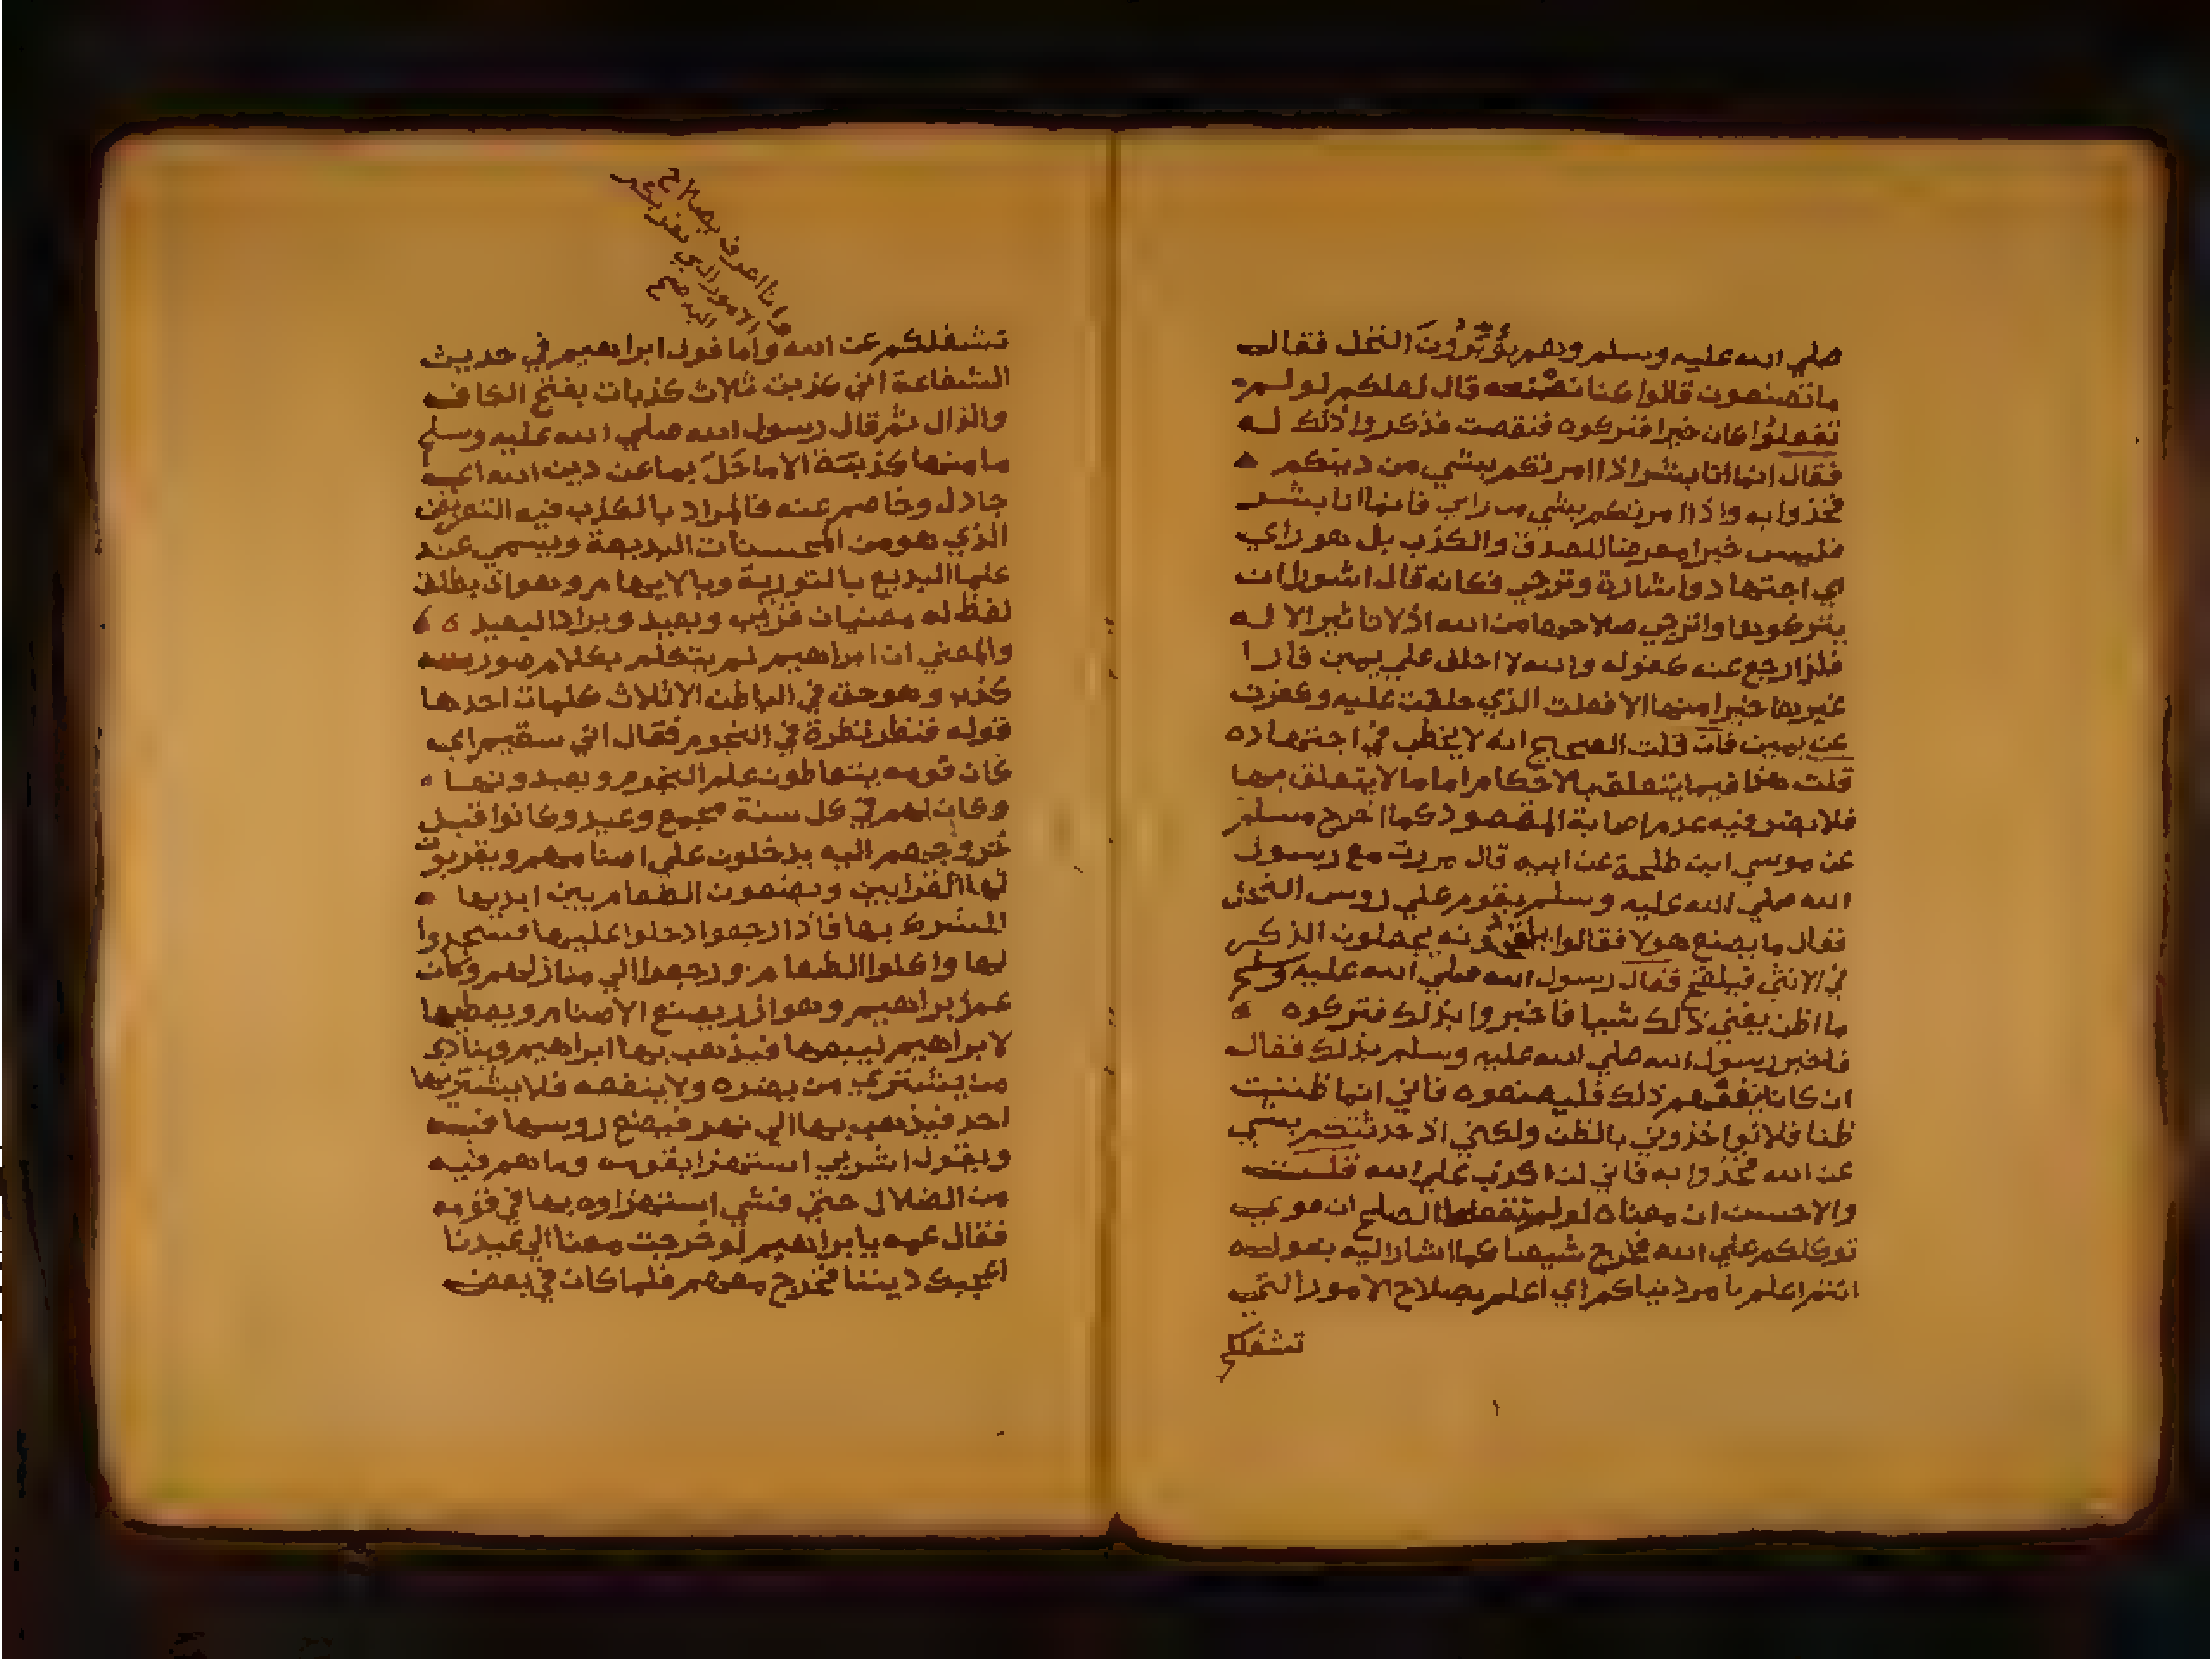 صلي الله عليه وسلم وهم يؤبّرُونَ النخل فقال
ما تصنعون قالوا كنا نصْنعه قال لعلكم لو لم
تفعلوا كان خيرا فتركوه فنقصت فذكروا ذلك له
فقال انما انا بشر اذا امرتكم بشي من دينكم
فخذوا به واذا امرتكم بشي من رايي فانما انا بشر
فليس خبرا معرضا للصدق والكذب بل هو راي
اي اجتهاد واشارة وترجي فكانه قال اشور ان
يتركوها واترجي صلاحها من الله اذ لا تاثير الا له
فلذا رجع عنه كقوله والله لا احلف علي يمين فارا
غيرها خيرا منها الا فعلت الذي حلفت عليه وكفرت
عن يمين فان قلت الصحيح انه لا يخطي في اجتهاده
قلت هذا فيما يتعلق بالاحكام اما ما لا يتعلق بها
فلا يضر فيه عدم اصابة المقصود كما اخرج مسلم
عن موسي ابن طلحة عن ابيه قال مررت مع رسول
الله صلي الله عليه وسلم بقوم علي روس النخل
فقال ما يصنع هولا فقالوا يلقحونه يجعلون الذكر
في الانثي فيلقح فقال رسول الله صلي الله عليه وسلم
ما اظن يغني ذلك شيا فاخبروا بذلك فتركوه
فاخبر رسول الله صلي الله عليه وسلم بذلك فقال
ان كان ينفعهم ذلك فليصنعوه فاني انما ظننت
ظنا فلا تواخذوني بالظن ولكني اذ حدثتكم بشي
عن الله فخذوا به فاني لن اكذب علي الله قلت
والاحسن ان معناه لو لم تفعلوا لصلح ان هو عي
توكلكم علي الله فخرج شيصا كما اشار اليه بقوله
انتم اعلم بامر دنياكم اي اعلم بصلاح الامور التي
تشغلكم
وانا اعرف بصلاح
الامور التي
تشغلكم عن الله واما قول ابراهيم في حديث
الشفاعة اني كذبت ثلاث كذبات بفتح الكاف
والذال ثم قال رسول الله صلي الله عليه وسلم
ما منها كذبَة الا ما حَلَ بها عن دين الله اي
جادل وخاصم عنه فالمراد بالكذب فيه التعريض
الذي هو من المحسنات البديعة ويسمي عند
علما البديع بالتورية وبالايهام وهو ان يطلق
لفظ له معنيان قريب وبعيد ويراد البعيد
والمعني ان ابراهيم لم يتكلم بكلام صورته
كذب وهو حق في الباطن الا ثلاث كلمات احدها
قوله فنظر نظرة في النجوم فقال اني سقيم اي
كان قومه يتعاطون علم النجوم ويعبدونها
وكان لهم في كل سنة مجمع وعيد وكانوا قبل
خروجهم اليه يدخلون علي اصنامهم ويقربون
لها القرابين ويصنعون الطعام بين ايديها
للتبرك بها فاذا رجعوا دخلوا عليها فسجدوا
لها واكلوا الطعام ورجعوا الي منازلهم وكان
عم ابراهيم وهو ازر يصنع الاصنام ويعطيها
لابراهيم ليبيعها فيذهب بها ابراهيم وينادي
من يشتري من يضره ولا ينفعه فلا يشتريها
احد فيذهب بها الي نهر فيضع روسها فيه
ويقول اشربي استهزا بقومه وما هم فيه
من الضلال حتي فشي استهزاوه بها في قومه
فقال عمه يا ابراهيم لو خرجت معنا الي عيدنا
اعجبك ديننا فخرج معهم فلما كان في بعض